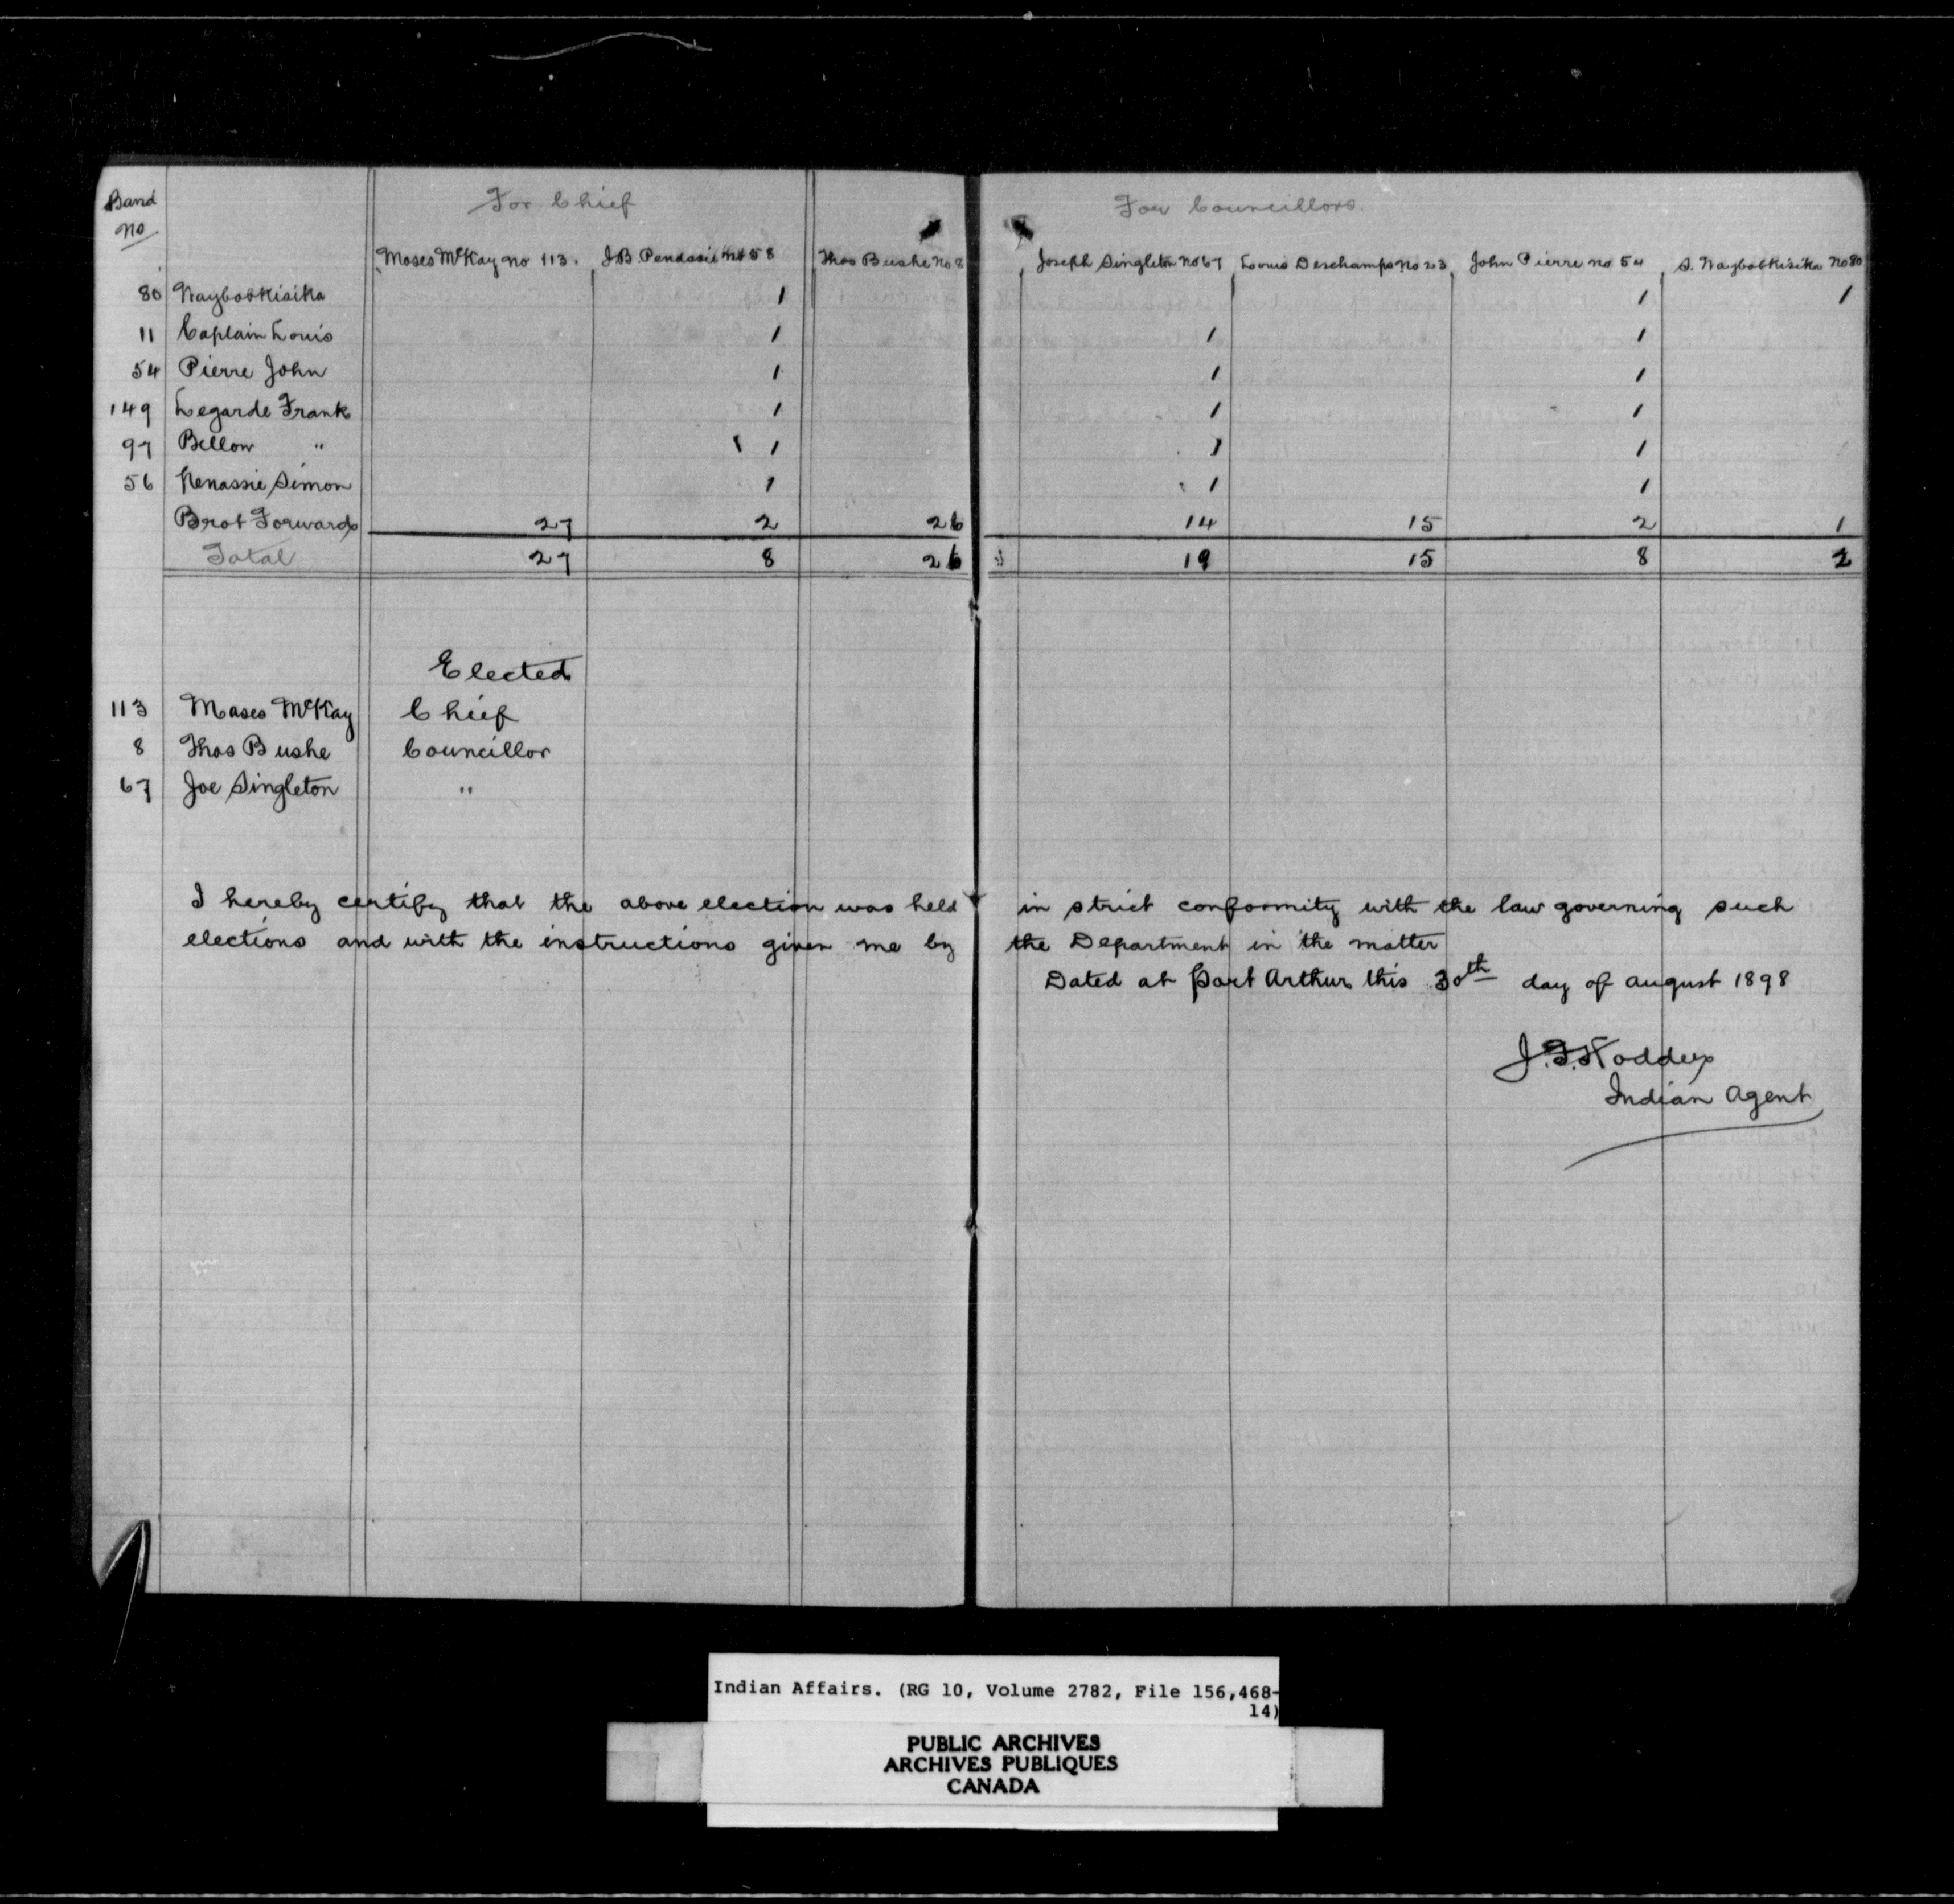 Band For Chief For Councillors
No
Moses McKay no 113. J.B. Penassie no 58 Thos Bushe No 8 Joseph Singleton No 67 Louis Deschamps No 23 John Pierre no 54 S. Waybobkisika No 80
80 Waybobkisika 1 1 1
11 Caplain Louis 1 1 1
54 Pierre John 1 1 1
149 Legarde Frank 1 1 1
97 Bellow " 1 1 1
56 Nenassie Simon 1 1 1
Brot Forward 27 2 26 14 15 2 1
Total 27 8 26 19 15 8 2
Elected
113 Moses McKay Chief
8 Thos Bushe Councillor
67 Joe Singleton "
I hereby certify that the above election was held in strict conformity with the law governing such
elections and with the instructions given me by the Department in the matter
Dated at Port Arthur this 30th day of August 1898
J.F. Hodder
Indian Agent
Indian Affairs. (RG 10, Volume 2782, File 156,468-
14)
PUBLIC ARCHIVES
ARCHIVES PUBLIQUES
CANADA